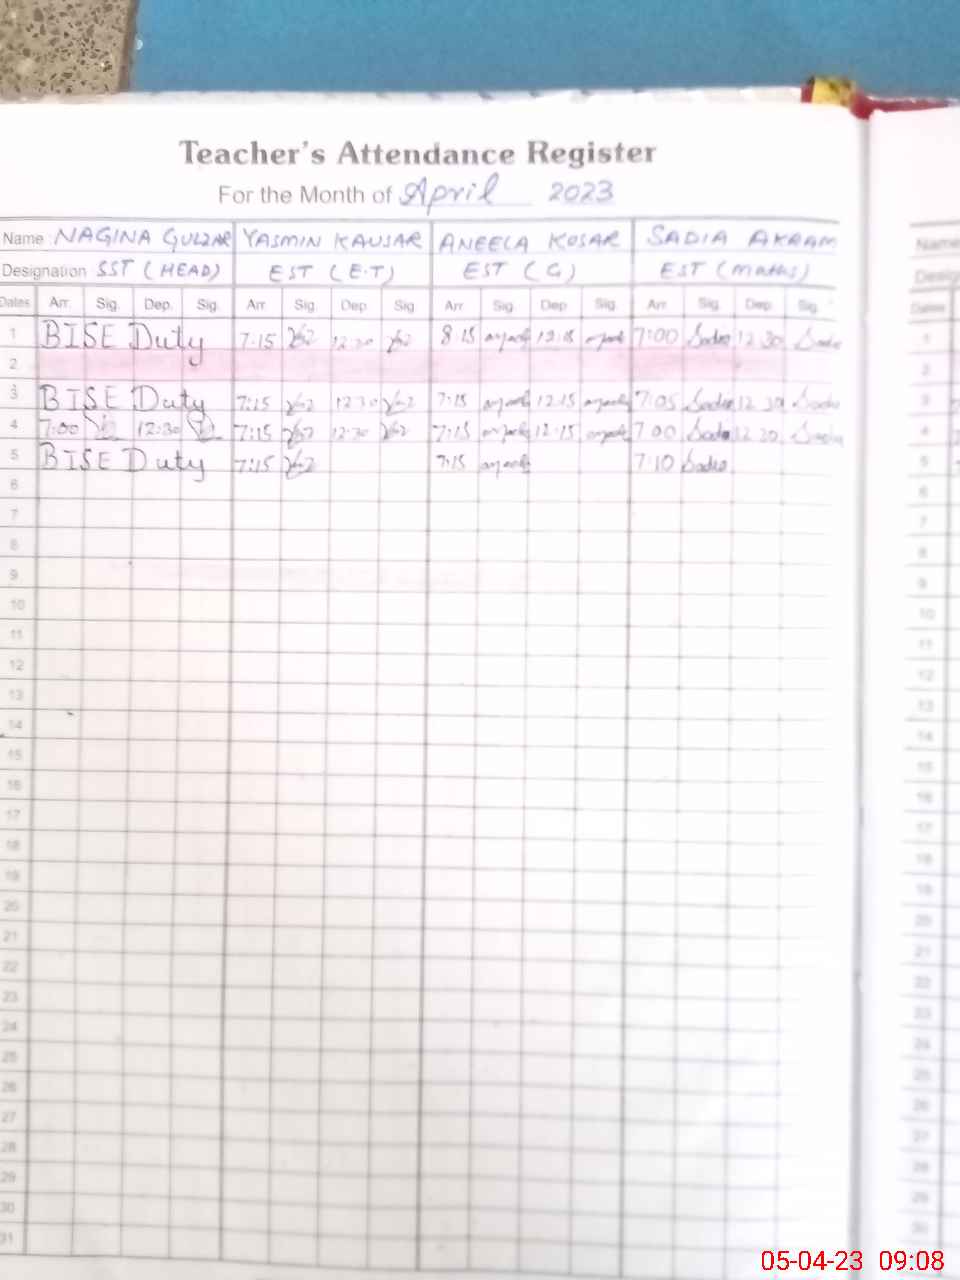 Teacher's Attendance Register
For the Month of April 2023
Name NAGINA GULZAR YASMIN KAUSAR ANEELA KOSAR SADIA AKRAM Name
Designation SST (HEAD) EST (E.T) EST (G) EST (Maths)
Dates Arr. Sig. Dep. Sig. Arr Sig Dep Sig Arr Sig Dep Sig. Arr Sig Dep. Sig. Dates
1 BISE Duty 7:15 12:30 8:15 12:15 7:00 Sadia 12 30 Sadia 1
2 2
3 BISE Duty 7:15 12 30 7:15 12:15 7:05 Sadia 12 30 Sadia 3
4 7:00 12:30 7:15 12:30 7:15 12:15 7 00 Sadia 12 30 Sadia 4
5 BISE Duty 7:15 7:15 7:10 Sadia 5
6 6
7 7
8 8
9 9
10 10
11 11
12 12
13 13
14 14
15 15
16 16
17 17
18 18
19 19
20 20
21 21
22 22
23 23
24 24
25 25
26 26
27 27
28 28
29 29
30 30
31
05-04-23 09:08